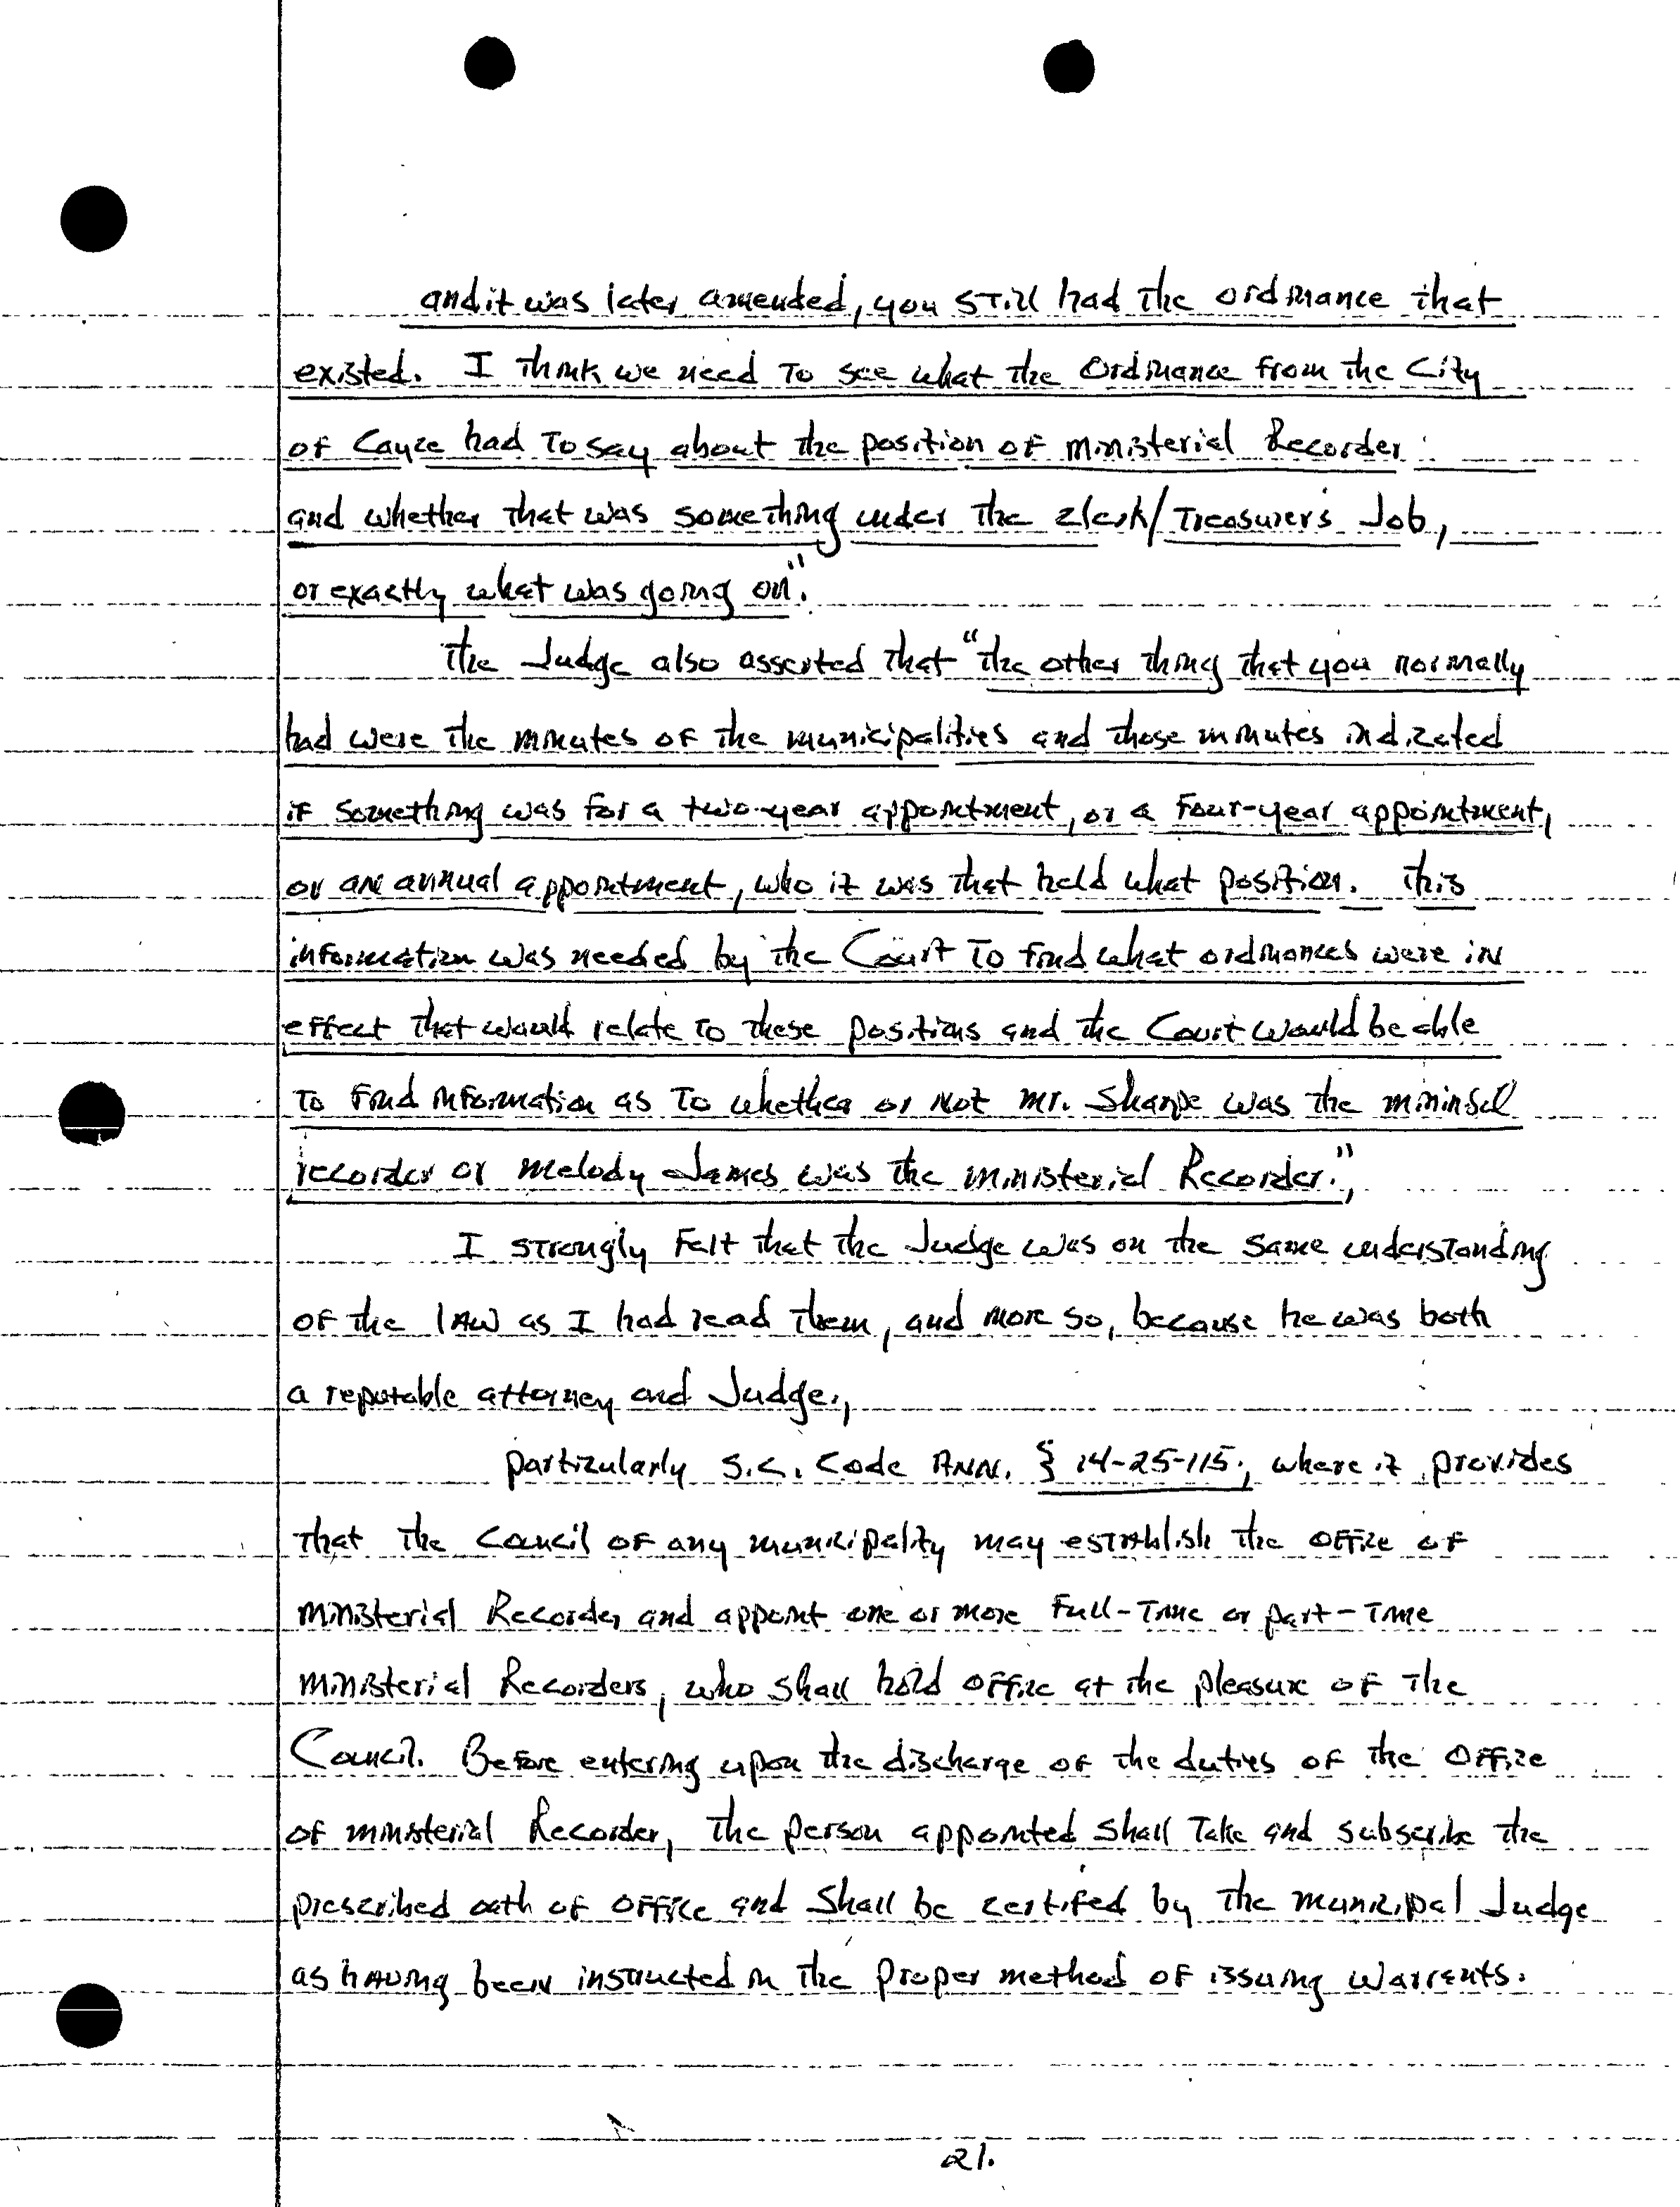 and it was later amended, you still had the ordinance that
existed. I think we need to see what the Ordinance from the City
of Cayce had to say about the position of ministerial Recorder
and whether that was something under the clerk/Treasurer's Job,
or exactly what was going on."
The Judge also asserted that "the other thing that you normally
had were the minutes of the municipalities and those minutes indicated
if something was for a two-year appointment, or a four-year appointment,
or an annual appointment, who it was that held what position. This
information was needed by the Court to find what ordinances were in
effect that would relate to these positions and the Court would be able
to find information as to whether or not mr. Sharpe was the
recorder or melody James was the ministerial Recorder.",
I strongly felt that the Judge was on the same understanding
of the law as I had read them, and more so, because he was both
a reputable attorney and Judge.,
particularly S.C. Code Ann. § 14-25-115., where it provides
that the Council of any municipality may establish the office of
ministerial Recorder and appoint one or more full-time or part-time
ministerial Recorders, who shall hold office at the pleasure of the
Council. Before entering upon the discharge of the duties of the office
of ministerial Recorder, the person appointed shall take and subscribe the
prescribed oath of office and shall be certified by the municipal Judge
as having been instructed in the proper method of issuing warrants.
21.